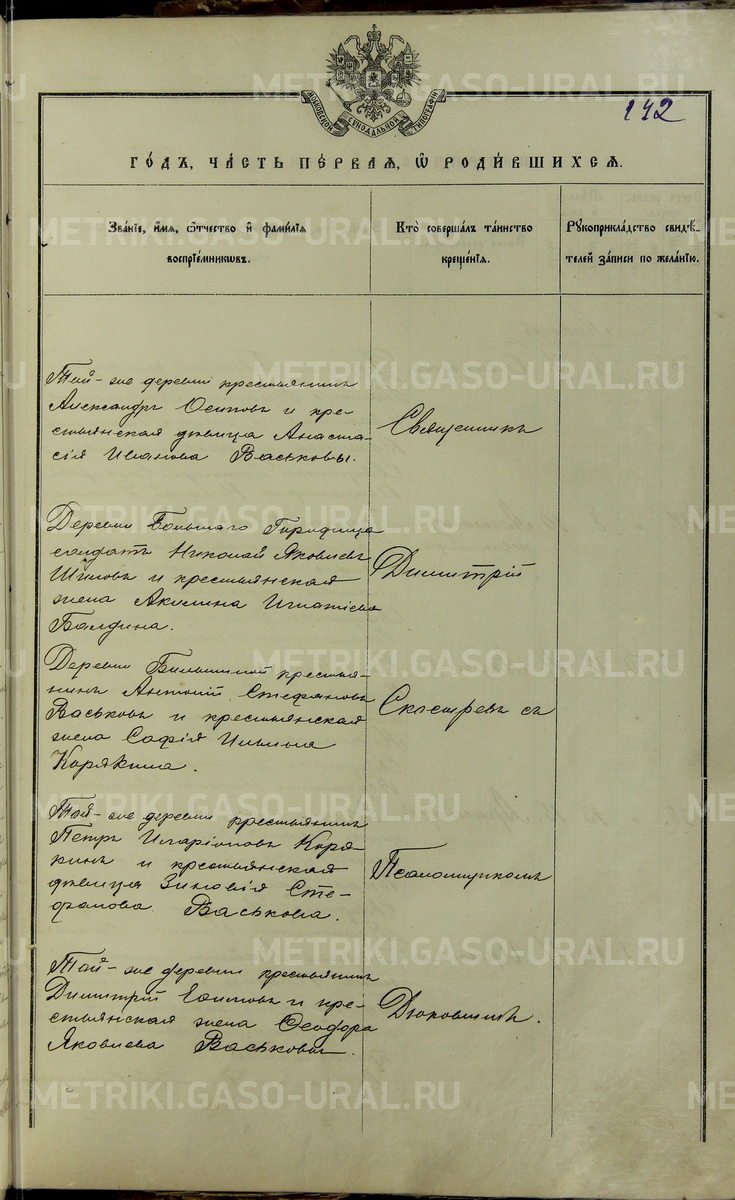 METRIKI.GASO-URAL.RU
МОСКОВСКОЙ СѴНОДАЛЬНОЙ ТИПОГРАФІИ
142
ГО́ДЪ, ЧА́СТЬ ПЕ́РВАЯ, Ѿ РОДИ́ВШИХСѦ.
Зва́нїе, и҆́мя, ѻ҆́тчество и҆ фами́лїя
воспрїе́мникѡвъ.
Кто̀ соверша́лъ та́инство
креще́нїя.
Рꙋкоприкла́дство свидѣ́-
телей за́писи по жела́нїю.
Той-же деревни крестьянинъ
Александръ Осиповъ и кре-
стьянская дѣвица Анаста-
сія Иванова Васьковы.
Священникъ
Деревни Большаго
солдатъ Николай Яковлевъ
Шиловъ и крестьянская
жена Акилина Игнатіева
Балдина.
Димитрій
Деревни крестья-
нинъ Антоній Стефановъ
Васьковъ и крестьянская
жена Софія Ильина
Корякина.
Скосыревъ съ
Той-же деревни крестьянинъ
Петръ Иларіоновъ Коря-
кинъ и крестьянская
дѣвица Зиновія Сте-
фанова Васькова.
Псаломщикомъ
Той-же деревни крестьянинъ
Димитрій Евимовъ и кре-
стьянская жена Ѳеодора
Яковлева Васьковы.